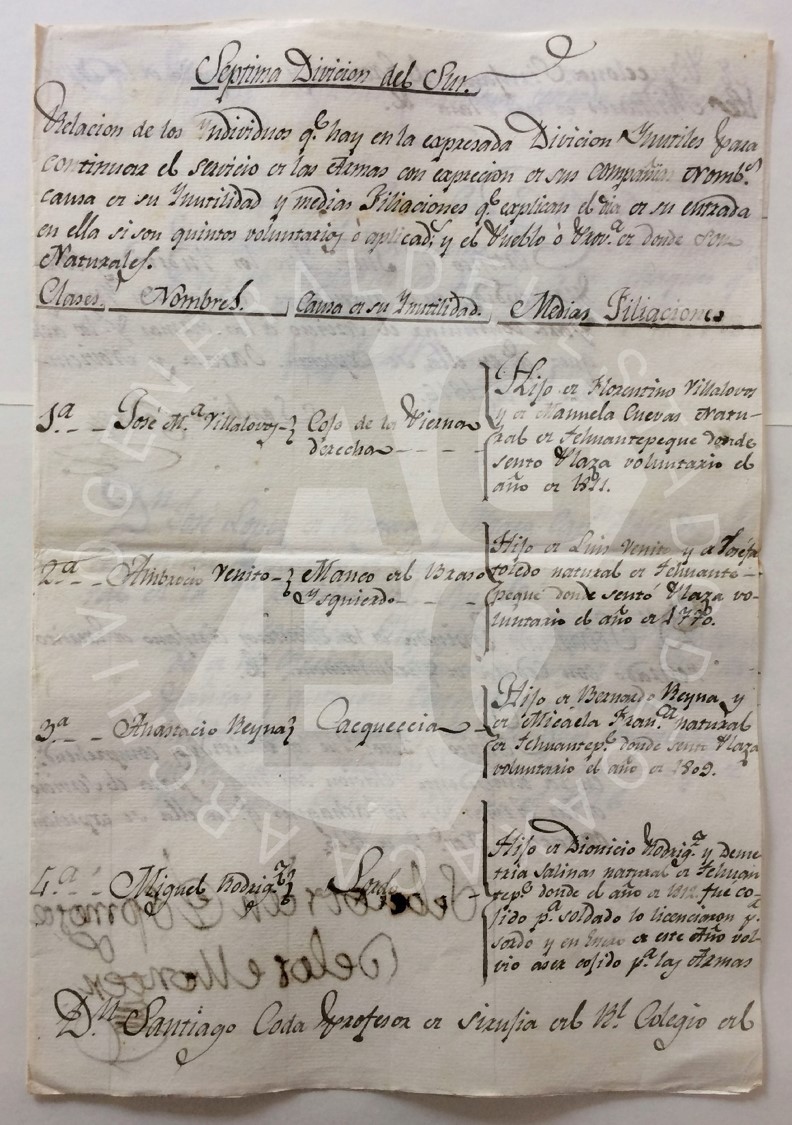 Septima Divicion del Sur.
Relacion de los Individuos q.e hay en la expresada Divicion Inutiles para
continuar el servicio de las Armas con exprecion de sus compañias Nomb.s
causa de su Inutilidad y medias Filiaciones q.e explican el dia de su entrada
en ella si son quintos voluntarios ò aplicad.s y el Pueblo ò Prov.a de donde son
Naturales.
Clases. Nombres. Causa de su Inutilidad. Medias Filiaciones
1.a José M.a Villalovos Cojo de la Pierna derecha
Hijo de Florentino Villalovos
y de Manuela Cuevas Natu-
ral de Tehuantepeque donde
sento Plaza voluntario el
año de 1811.
2.a Ambrocio Venito Manco del Braso Ysquierdo
Hijo de Luis Venito y de Josefa
toledo natural de Tehuante-
peque donde sentó Plaza vo-
luntario el año de 1770.
3.a Anastacio Reyna Cacqueccia
Hijo de Bernardo Reyna y
de Micaela Fran.ca natural
de Tehuantep.e donde sentó Plaza
voluntario el año de 1809.
4.a Miguel Rodrig.z Sordo
Hijo de Dionicio Rodrig.z y Deme
tria Salinas natural de Tehuan
tep.e donde el año de 1812 fue co-
jido p.a soldado lo licenciaron p.r
sordo y en Enero de este Año vol-
vio aser cojido p.a las Armas
D.n Santiago Coda Profesor de sirujia del R.l Colegio del
ARCHIVO GENERAL DEL ESTADO DE OAXACA